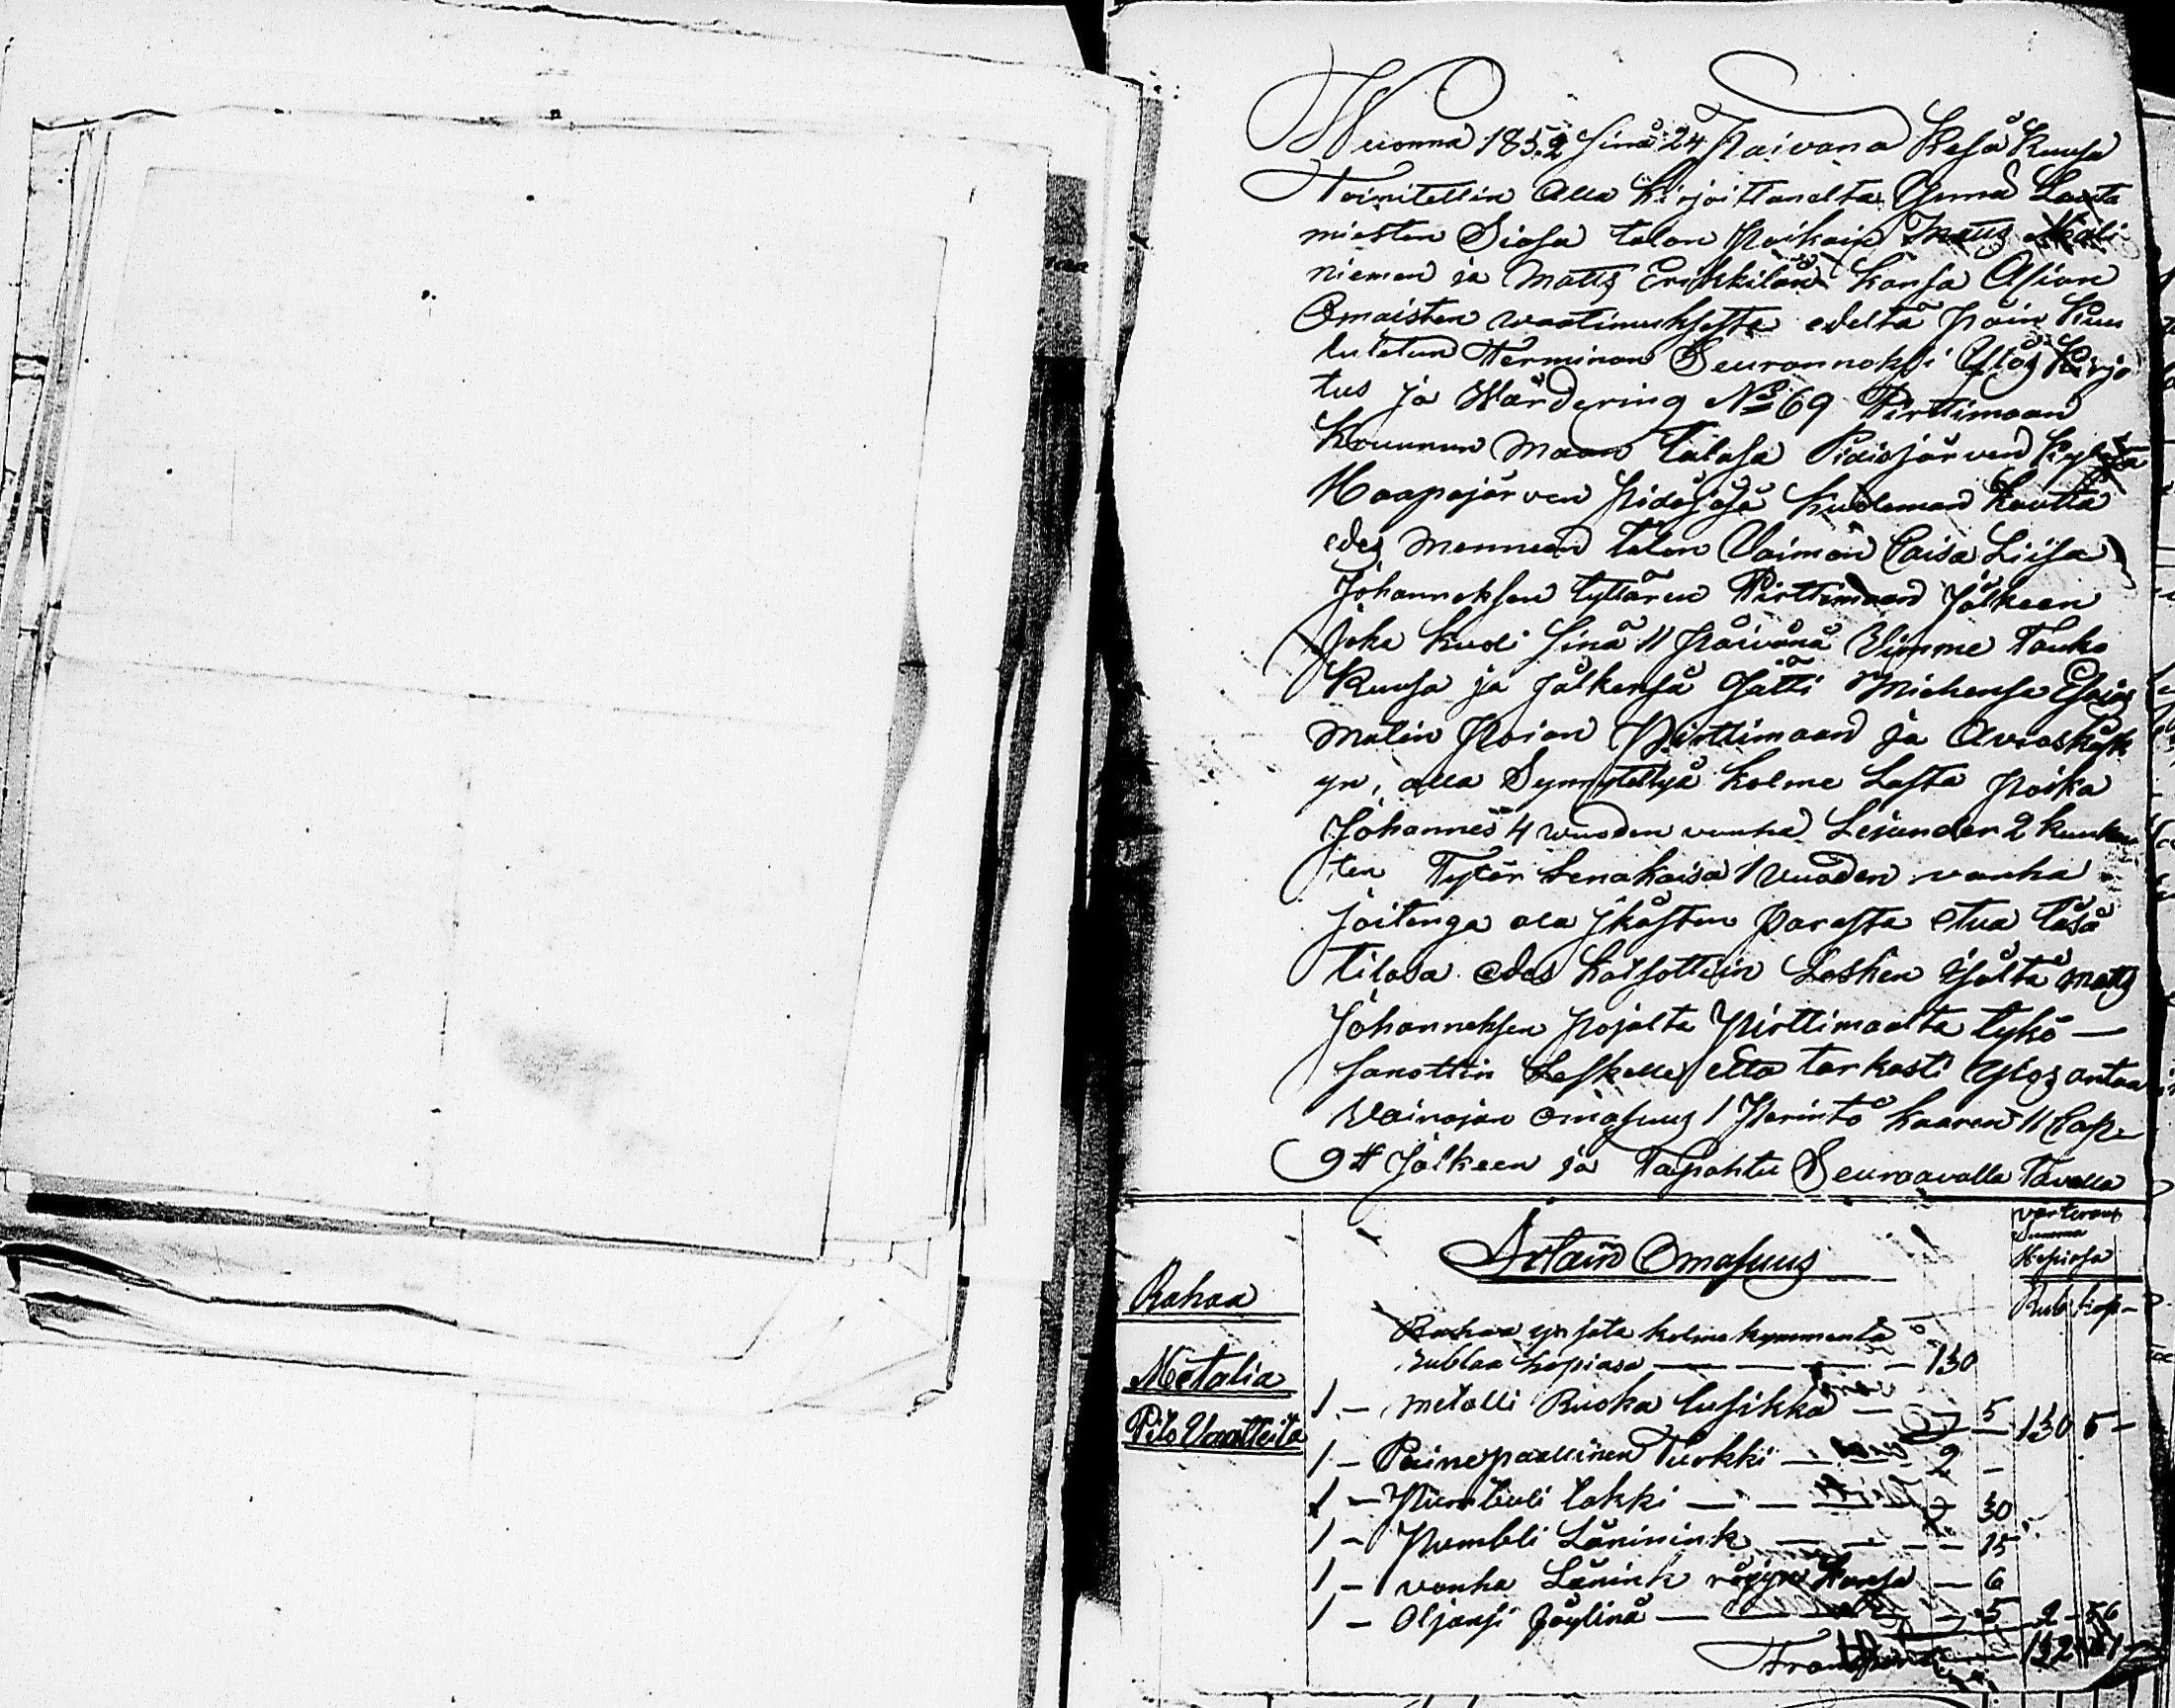 Wuonna 1852 sinä 24 Päivana Kesä Kuusa
Toimitettin Alla Kirjoittanelta Ynnä Lauta
miesten Siasa talon Poikain Matts Mali
niemen ja Matts Erikkilän kansa Asian
Omaisten waatimuksesta edeltä päin Kuu
lutetun Terminan Seurannoksi Ylös Kirjo
tus ja Wärdering No 69 Pirttimaan
Kruunun Maan talosa Pidisjärven Kyläsä
Haapajärven Pidäjäsä Kuoleman kautta
edes mennen talon Vaimon Caisa Liisa
Johanneksen tyttären Pirttimaan Jälkeen
Joka kuoli sinä 11 Päivänä Viimme Touko
Kuusa ja Jälkensä Jätti Miehensä Esaias
Matin Poian Pirttimaan ja Avioskäsk
yn, alla Synnytettyä kolme Lasta Poika
Johannes 4 wuoden vanha Lexander 2 kuukau
ten Tytär Lenakaisa 1 Vuoden vanha
joitenga ala jkästen parasta etua täsä
tilasa edes katsottiin Lesken Isältä Matts
Johanneksen Pojalta Pirttimaalta tykö —
Sanottin Leskelle että tarkasti Ylös antaa
Vainajan omasuus 1 Perintö Kaaren 11 Cap:
9 § Jälkeen ja Tapahtu Seuraavalla Tavalla
Irtain Omasuus
Värteraus
Summa
Hopiasa
Rub kop
Rahaa
Rahaa yx sata kolme kymmentä
rublaa hopiasa — — — 130
Metalia
1 — metalli Ruoka lusikka — 5 — 130 5 —
Pito Vaatteita
1 — Painepaallinen Turkki — 2 —
1 — Plumtieli lakki — — 30
1 — Pumbli Läninink — — 15
1 — vanha Länink — 6
1 — Oljansi — 5 2 — 56
Transport — 132 61